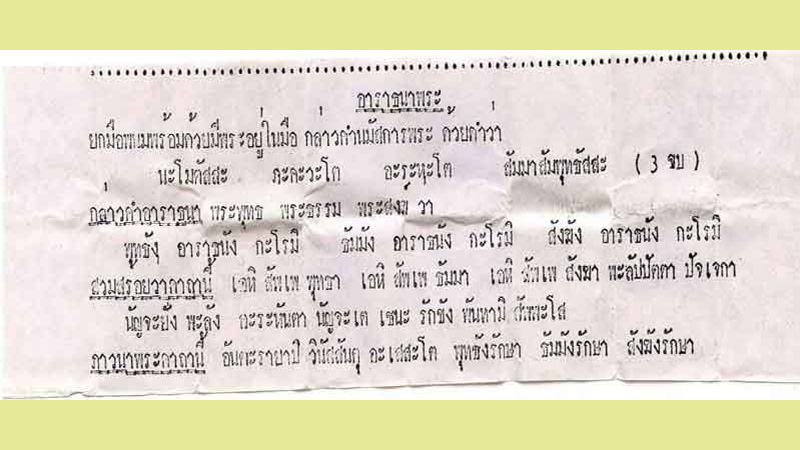 อาราธนาพระ
ยกมือพนมพร้อมด้วยมีพระอยู่ในมือ กล่าวคำนมัสการพระ ด้วยคำว่า
นะโมตัสสะ ภะคะวะโต อะระหะโต สัมมาสัมพุทธัสสะ (3 จบ)
กล่าวคำอาราธนา พระพุทธ พระธรรม พระสงฆ์ ว่า
พุทธัง อาราธนัง กะโรมิ ธัมมัง อาราธนัง กะโรมิ สังฆัง อาราธนัง กะโรมิ
สวมสร้อยว่าคาถานี้ เอหิ สัพเพ พุทธา เอหิ สัพเพ ธัมมา เอหิ สัพเพ สังฆา พะลัปปัตตา ปัจเจกา
นัญจะยัง พะลัง อะระหันตา นัญจะเต เชนะ รักขัง พันทามิ สัพพะโส
ภาวนาพระคาถานี้ อันตะรายาปิ วินัสสันตุ อะเสสะโต พุทธังรักษา ธัมมังรักษา สังฆังรักษา